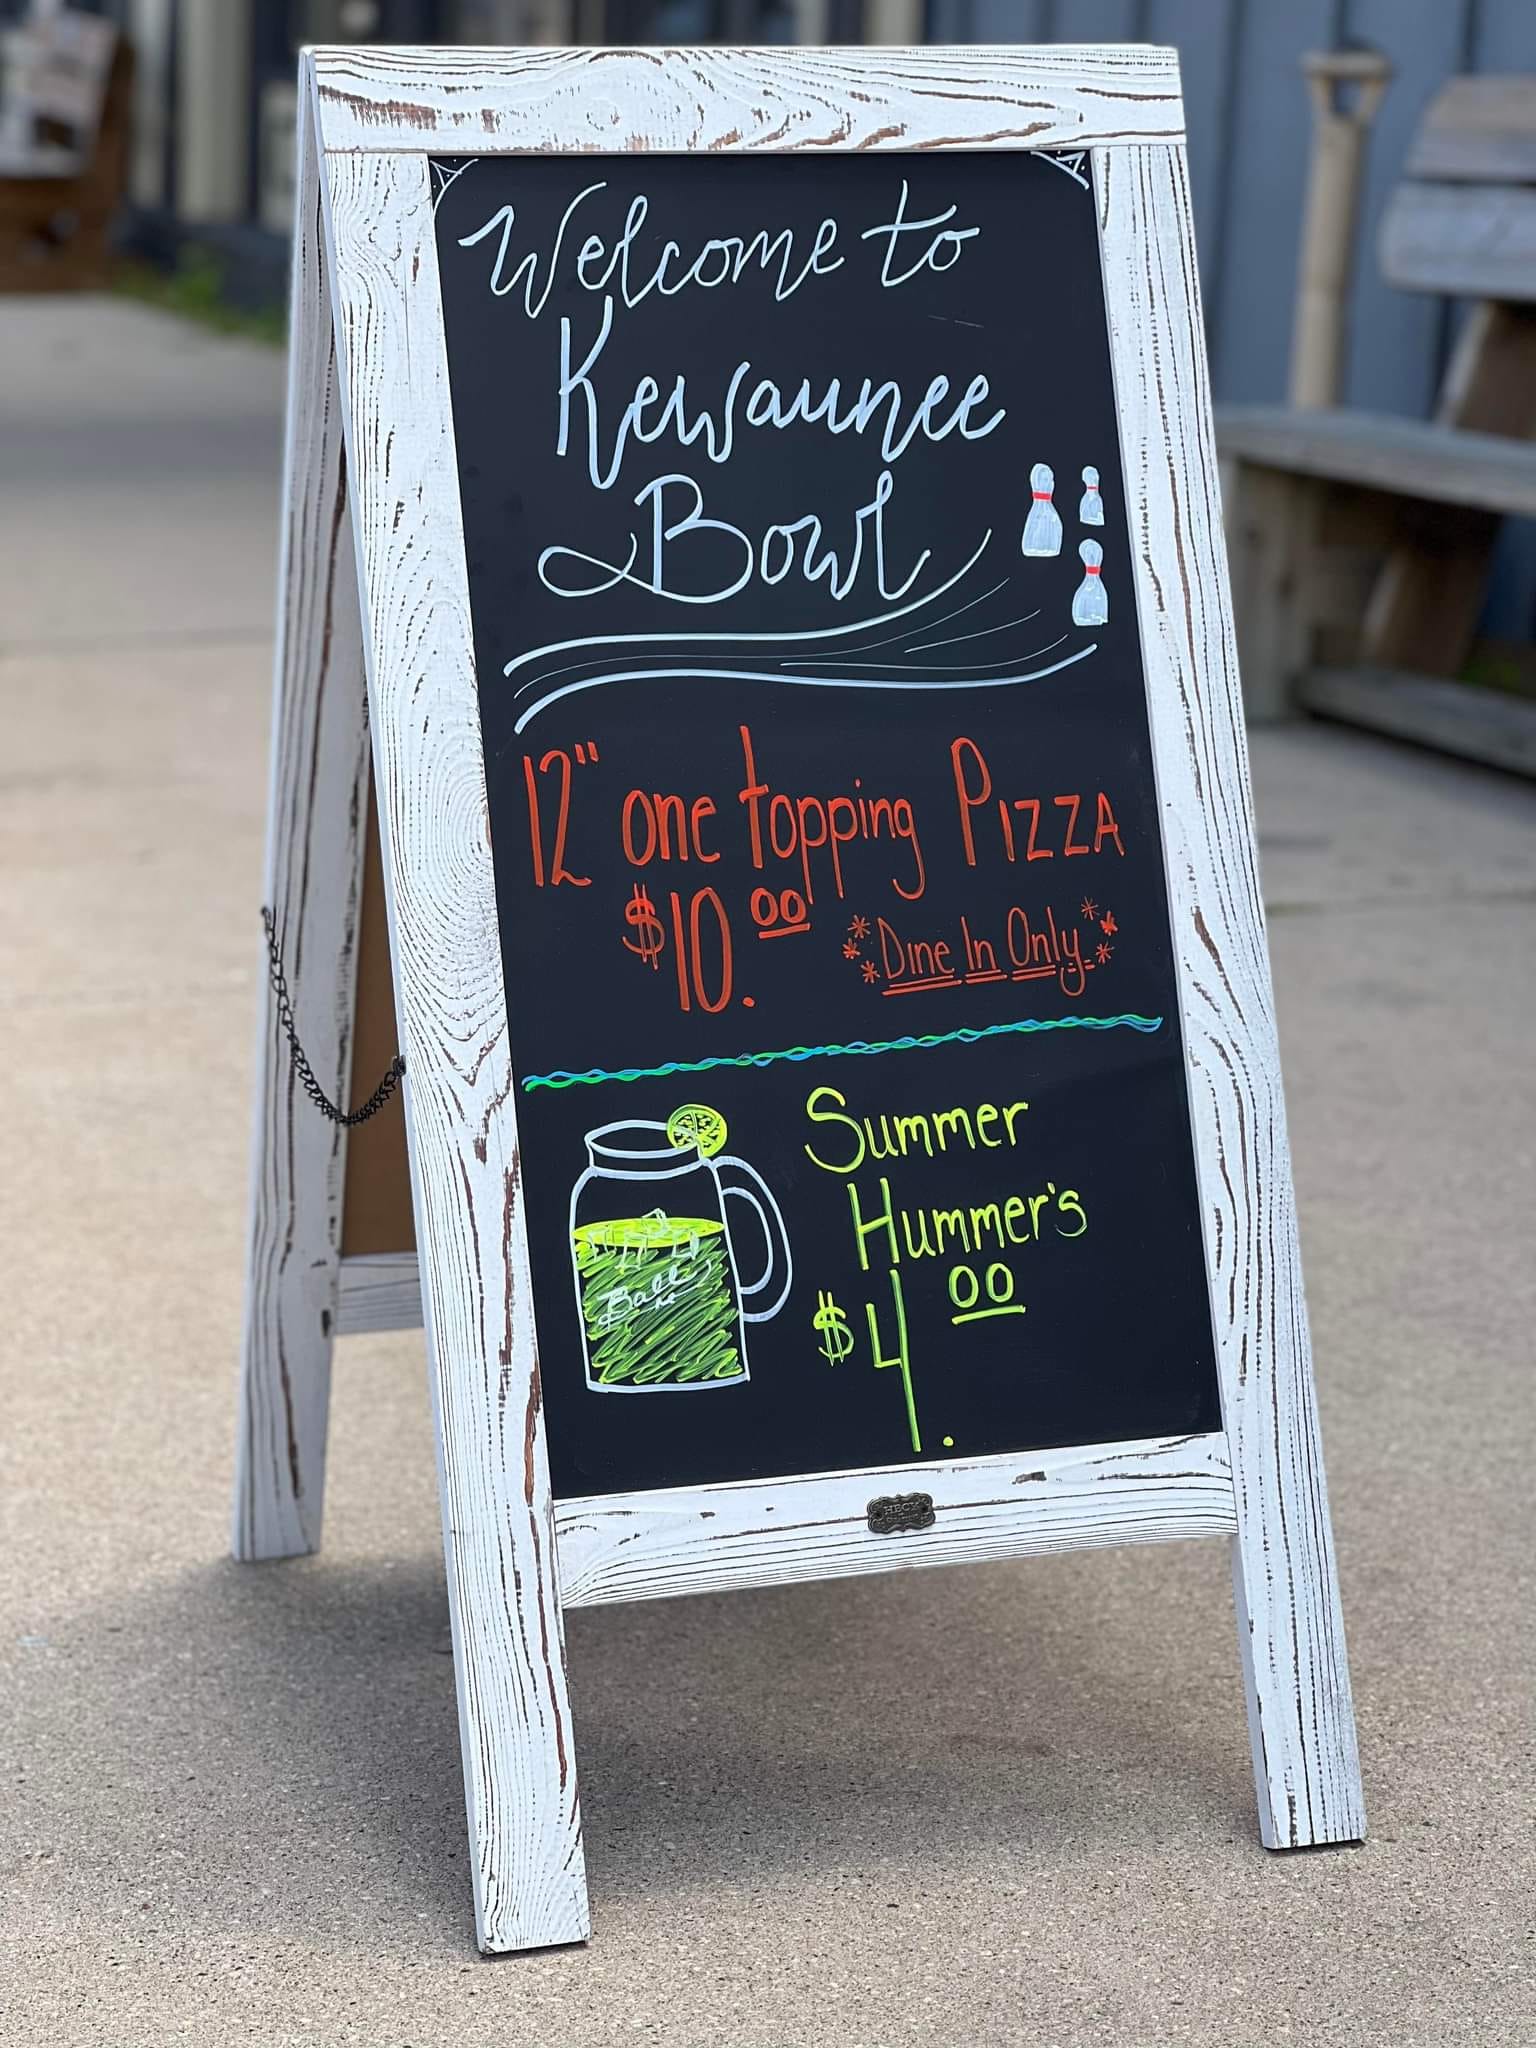 Welcome to
Kewaunee
Bowl
12" one topping PIZZA
$10.00 *Dine In Only*
Summer
Hummer's
$4.00
Ball
HECK